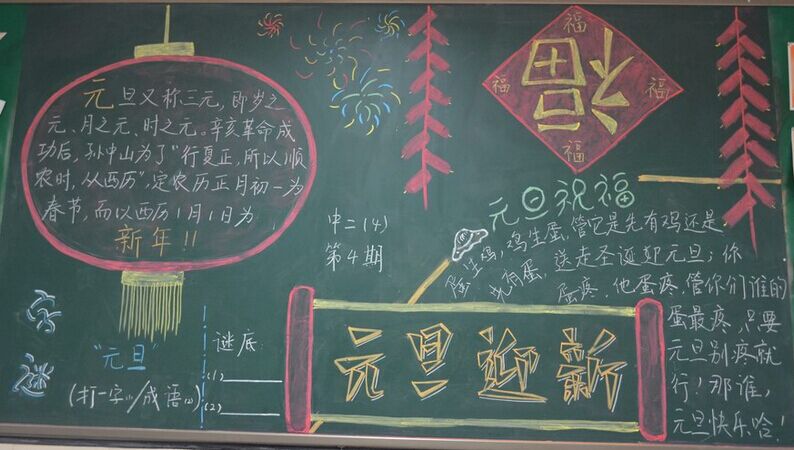 元旦又称三元,即岁之
元、月之元、时之元。辛亥革命成
功后,孙中山为了“行夏正,所以顺
农时,从西历”,定农历正月初一为
春节,而以西历1月1日为
新年!!
福
福
福
福
福
中二(4)
第4期
元旦祝福
蛋生鸡,鸡生蛋,管它是先有鸡还是
先有蛋,送走圣诞迎元旦;你
蛋疼,他蛋疼,管你们谁的
蛋最疼,只要
元旦别疼就
行!那谁,
元旦快乐哈!
元旦迎新
字谜
“元旦”
(打一字(1)/成语(2))
谜底:
(1)
(2)